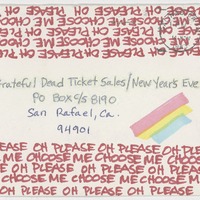 PLEASE OH PLEASE OH
CHOOSE ME CHOOSE ME
PLEASE OH PLEASE OH
CHOOSE ME CHOOSE ME
PLEASE OH PLEASE OH
Grateful Dead Ticket Sales/New Year's Eve
PO Box c/s 8190
San Rafael, Ca.
94901
PLEASE OH PLEASE OH PLEASE OH
ME CHOOSE ME CHOOSE ME CHOOSE
OH PLEASE OH PLEASE OH PLEASE
CHOOSE ME CHOOSE ME CHOOSE ME
OH PLEASE OH PLEASE OH PLEASE